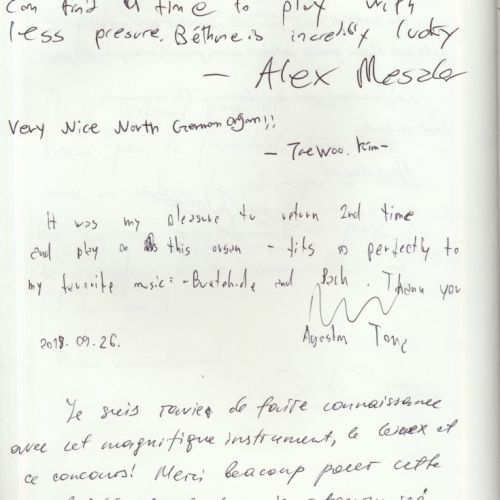 Can find a time to play with
less presure. Béthune is incredibly lucky
— Alex Meszler
Very Nice North German organ!!
— Taewoo. Kim—
It was my pleasure to return 2nd time
and play on this organ - fits so perfectly to
my favorite music: - Buxtehude and Bach. Thank you
2018. 09. 26.
Agostin Tone
Je suis ravie de faire connaissance
avec cet magnifique instrument, le lieux et
ce concours! Merci beaucoup pour cette